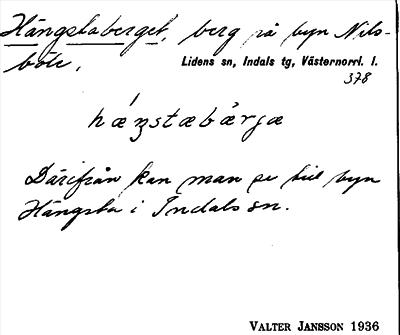 Hängstaberget, berg på byn Nils-
böle,
Lidens sn, Indals tg, Västernorrl. l.
378
hǽŋstæbǽrjæ
Därifrån kan man se till byn
Hängsta i Indals sn.
VALTER JANSSON 1936